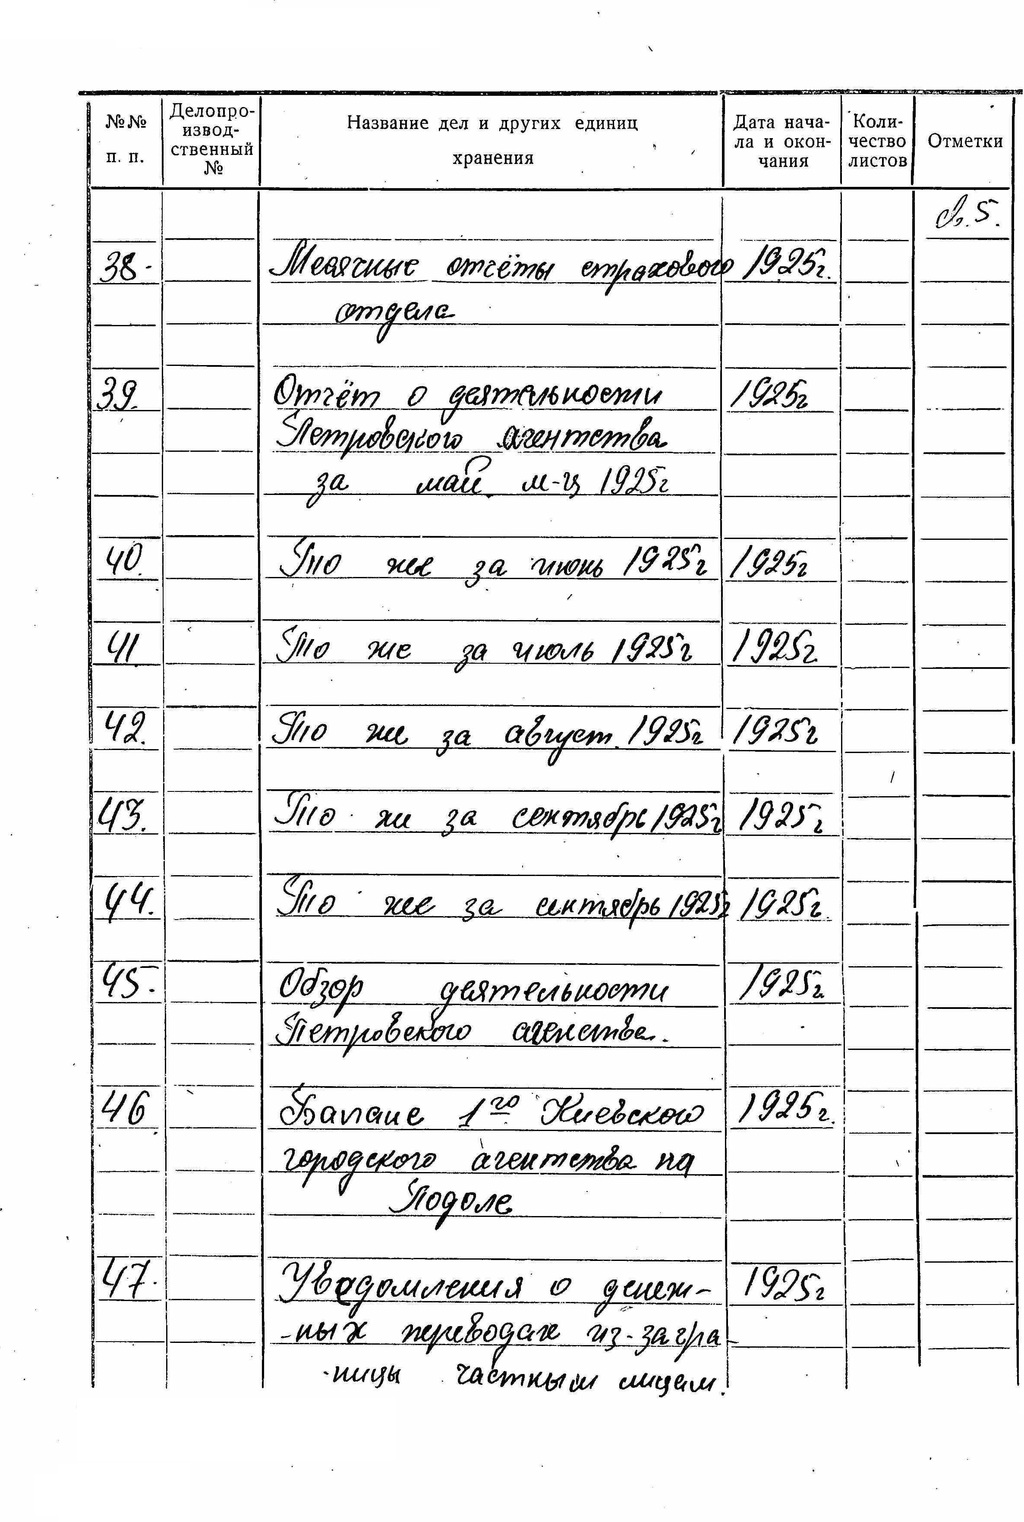 №№ п. п.
Делопро-
извод-
ственный
№
Название дел и других единиц
хранения
Дата нача-
ла и окон-
чания
Коли-
чество
листов
Отметки
л. 5.
38. Месячные отчёты страхового 1925г.
отдела
39. Отчёт о деятельности 1925г
Петровского агентства
за май м-ц 1925г
40. То же за июнь 1925г 1925г
41 То же за июль 1925г 1925г.
42. То же за август. 1925г 1925г
43. То же за сентябрь 1925г 1925г
44. То же за сентябрь 1925г 1925г.
45. Обзор деятельности 1925г.
Петровского агенства.
46 Баланс 1го Киевского 1925г.
городского агентства на
Подоле
47. Уведомления о денеж- 1925г
-ных переводах из-загра-
-ницы частным лицам.